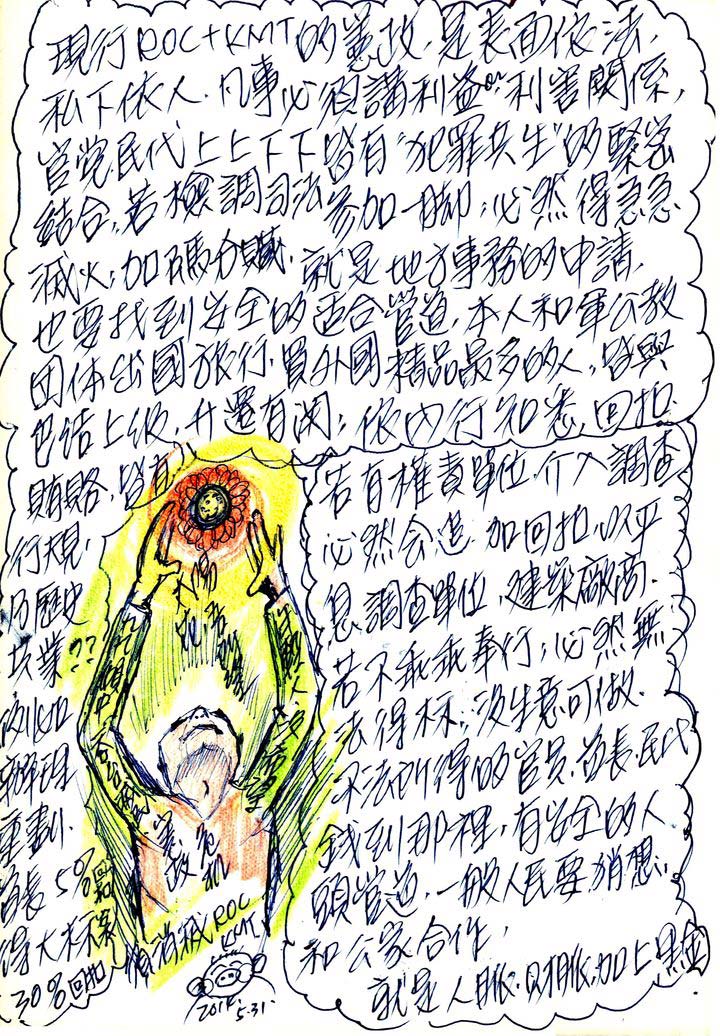 現行ROC+KMT的憲政,是表面依法,
私下依人.凡事必須講利益or利害關係,
官党民代上上下下皆有"犯罪共生"的緊急
結合,若檢調司法參加一腳,必然得急急
滅火,加碼分贓.就是地方事務的申請,
也要找到安全的适合管道.本人和軍公教
团体出國旅行.買外國精品最多的人,皆與
包结上级.升遷有関,依內行知悉,回扣.
賄賂,皆有
行規,
乃歷史
共業??
辦理
重劃.
首長5%
得大标案
30%回扣
若有權責單位.介入調查
必然会追加回扣.以平
息調查單位,建築廠商.
若不乖乖奉行,必然無
法得标,没生意可做.
不法所得的官员.首長.民代
錢到那裡,有安全的人
頭管道.一般人民要猜想,
和公家合作,
就是人脈.財脈.加上黑金
太陽
憲政危机
消滅ROC
KMT
2014.
5.31.